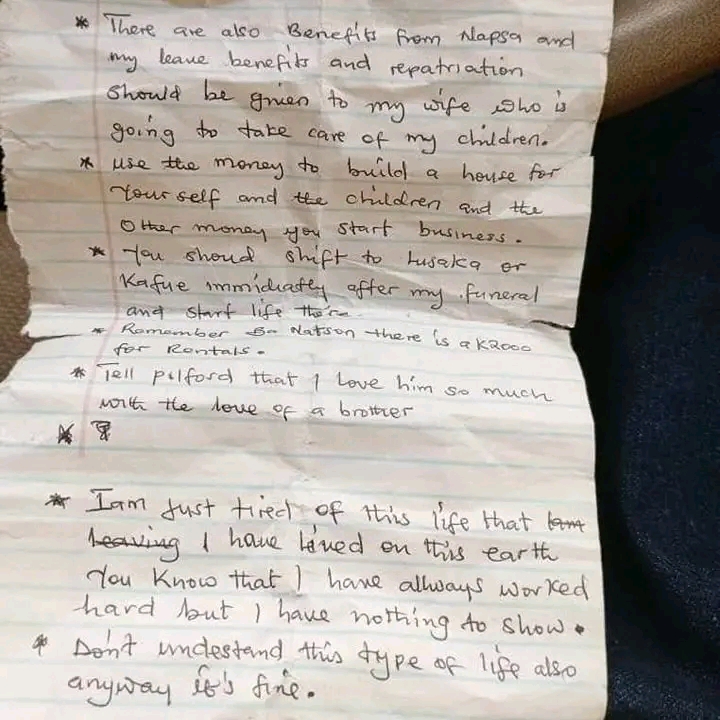 * There are also Benefits from Napsa and
my leave benefits and repatriation
should be given to my wife who is
going to take care of my children.
* use the money to build a house for
Your self and the children and the
Other money you start business.
* You should shift to Lusaka or
Kafue immidiately after my funeral
and start life there
* Remember Natson there is a K2000
for Rentals.
* Tell pilford that I Love him so much
with the love of a brother
* I am Just tired of this life that
Leaving I have lived on this earth
You Know that I have allways worked
hard but I have nothing to show.
* Don't undestand this type of life also
anyway it's fine.